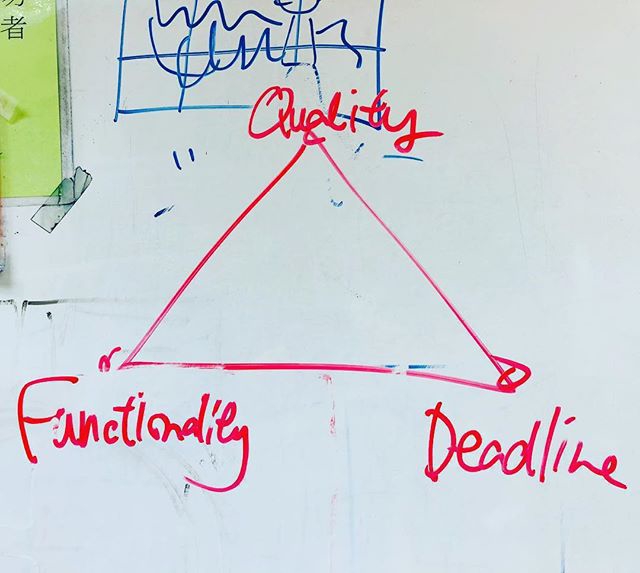 者
Quality
Functionality
Deadline